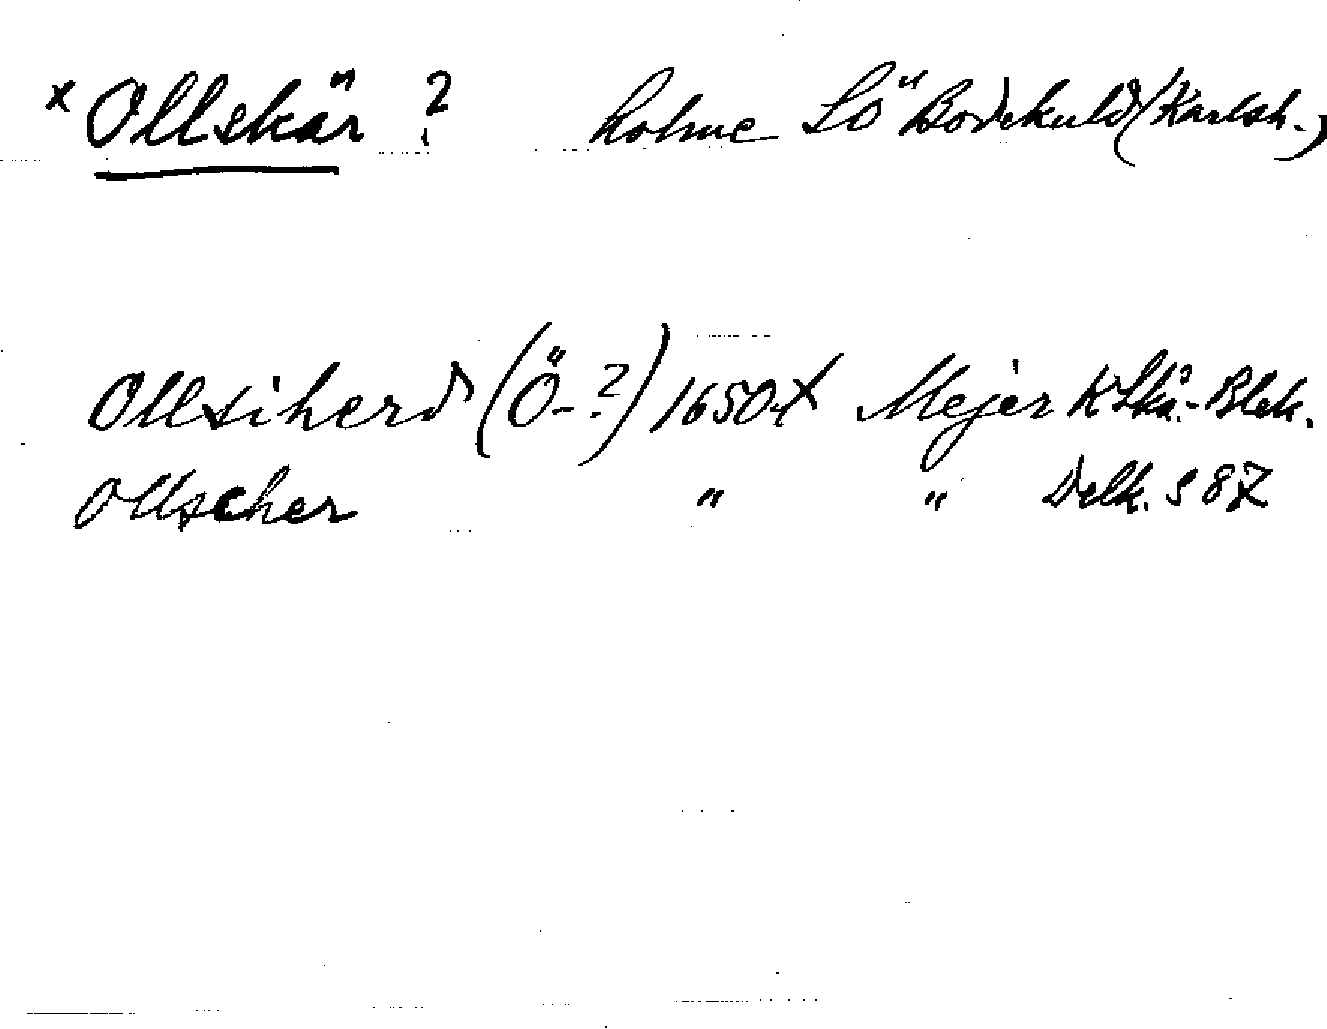 x Ollskär ? holme SÖ Bodekuld (Karlsh.)
Ollsiherd (Ö-?) 1650-t Mejer K Skå.-Blek.
Ollscher " " Delk. S 87